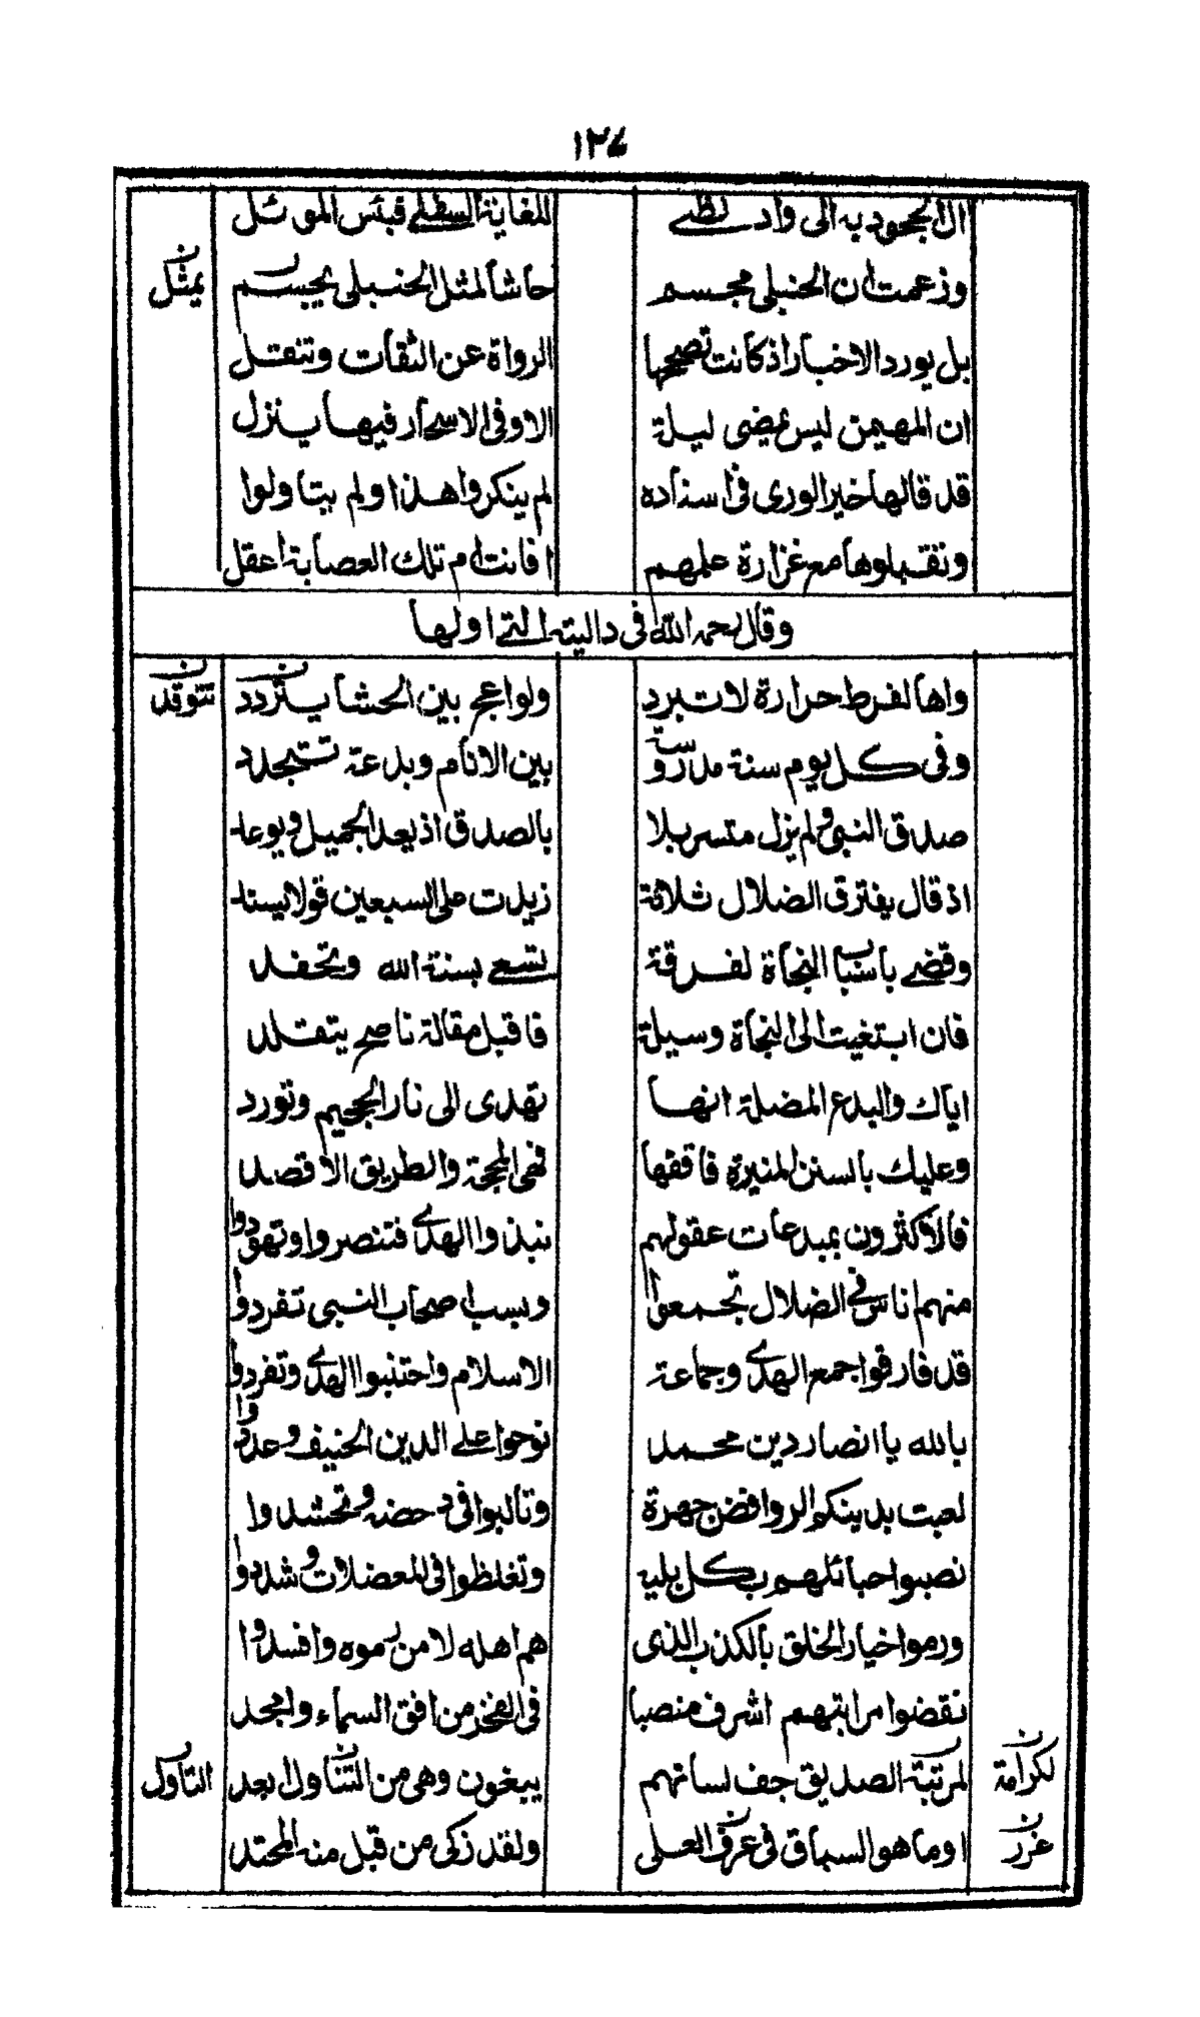 ١٢٧
ال الجحود به الى وادى لظى للغاية السفلى فبئس الموئل
وزعمت ان الحنبلى مجسم حاشا لمثل الحنبلى يجسم يمثل
بل يورد الاخبار اذ كانت تصححها الرواة عن الثقات وتنقل
ان المهيمن ليس يمضى ليلة الا وفى الاسحار فيها ينزل
قد قالها خير الورى فى اسناده لم ينكروا هذا ولم يتاولوا
وتقبلوها مع غزارة علمهم افانت ام تلك العصابة اعقل
وقال رحمه الله فى داليته التى اولها
واها لفرط حرارة لا تبرد ولواعج بين الحشا يتردد تتوقد
وفى كل يوم سنة مدروسة بين الانام وبدعة تتجدد
صدق النبى ولم يزل متسربلا بالصدق اذ يعد الجميل ويوعد
اذ قال يفترق الضلال ثلاثة زيدت على السبعين قولا يسند
وقضى باسباب النجاة لفرقة تسعى بسنة الله وتحفد
فان ابتغيت الى النجاة وسيلة فاقبل مقالة ناصح يتقلد
اياك والبدع المضلة انها تهدى الى نار الجحيم وتورد
وعليك بالسنن المنيرة فاقفها فهى المحجة والطريق الاقصد
فالاكثرون بمبدعات عقولهم نبذوا الهدى فتنصروا وتهودوا
منهم اناس فى الضلال تجمعوا وبسب اصحاب النبى تفردوا
قد فارقوا جمع الهدى وجماعة الاسلام واجتنبوا الهدى وتفردوا
بالله يا انصار دين محمد نوحوا على الدين الحنيف وعددوا
لعبت بدينكم الروافض جهرة وتالبوا فى دحضه وتحشدوا
نصبوا حبائلهم بكل بلية وتغلظوا فى المعضلات وشددوا
ورموا خيار الخلق بالكذب الذى هم اهله لا من رموه وافسدوا
نقضوا مراتبهم اشرف منصبا فى الفخر من افق السماء وامجد
لكرامة لمرتبة الصديق جف لسانهم يبغون وهى من التناول ابعد التاول
غرر اوما هو السباق فى عرف العلى ولقد زكى من قبل منه المحتد